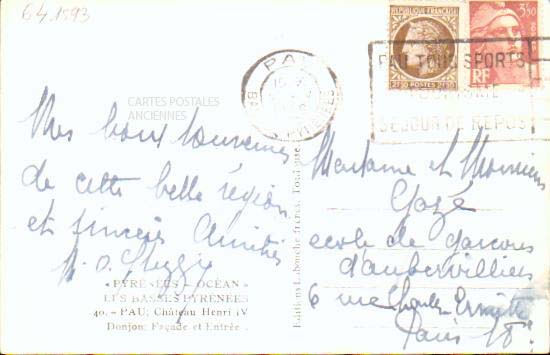 64.1593
RÉPUBLIQUE FRANÇAISE
2F50
3F50
RF
PAU
BSES PYRENEES
PAU TOUS SPORTS
TOURISME
SEJOUR DE REPOS
CARTES POSTALES
ANCIENNES
Nos bons souvenirs
de cette belle région
et sincères Amitiés
"PYRÉNÉES - OCÉAN"
LES BASSES-PYRÉNÉES
40. - PAU: Château Henri IV
Donjon: Façade et Entrée.
Editions Labouche frères, Toulouse
Madame et Monsieur
Gozé
ecole de garcons
d'aubervilliers
6 rue Ermitte
Paris 18e